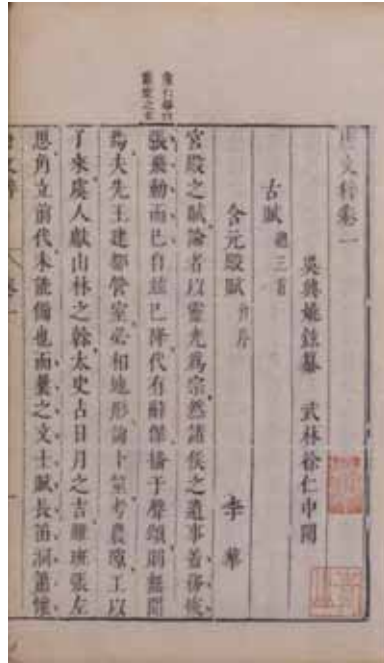 唐文粹卷一
吳興姚鉉纂　武林徐仁中閱
古賦 總三首
含元殿賦 并序　李華
宮殿之賦論者以靈光爲宗然諸侯之遺事蓋務恢
張飛動而已自茲已降代有辭傑播于聲頌則無聞
焉夫先王建都營室必相地形詢卜筮考農隙工以
子來虞人獻山林之榦太史占日月之吉雖班張左
思角立前代未能備也而曩之文士賦長笛洞簫懷